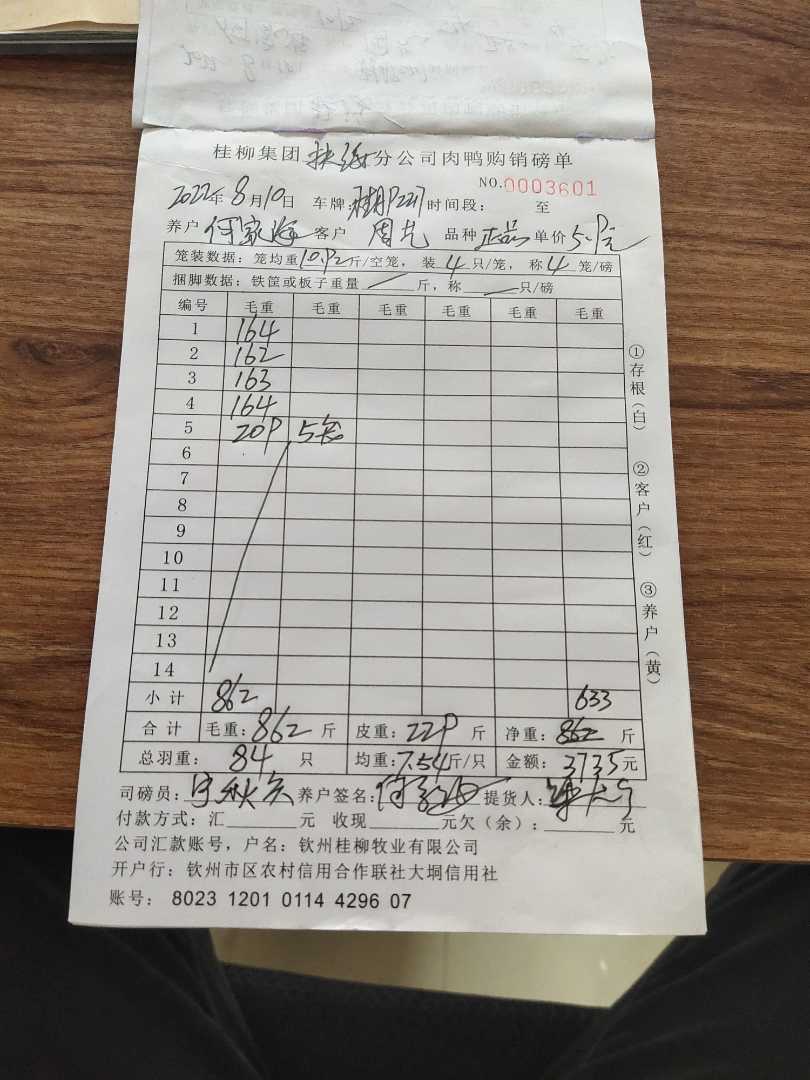 桂柳集团扶绥分公司肉鸭购销磅单
NO.0003601
2022年8月10日 车牌: 时间段: 至
养户 何家海 客户 周光 品种 正品 单价 5.9元
笼装数据: 笼均重10.92斤/空笼, 装4只/笼, 称4笼/磅
捆脚数据: 铁筐或板子重量 斤, 称 只/磅
编号 毛重 毛重 毛重 毛重 毛重 毛重
1 164
2 162
3 163
4 164
5 209 5笼
6
7
8
9
10
11
12
13
14
小计 862 633
合计 毛重: 862 斤 皮重: 229 斤 净重: 862 斤
总羽重: 84 只 均重: 7.54斤/只 金额: 3735元
司磅员: 养户签名: 提货人:
付款方式: 汇 元 收现 元欠(余): 元
公司汇款账号, 户名: 钦州桂柳牧业有限公司
开户行: 钦州市区农村信用合作联社大垌信用社
账号: 8023 1201 0114 4296 07
①存根(白)
②客户(红)
③养户(黄)